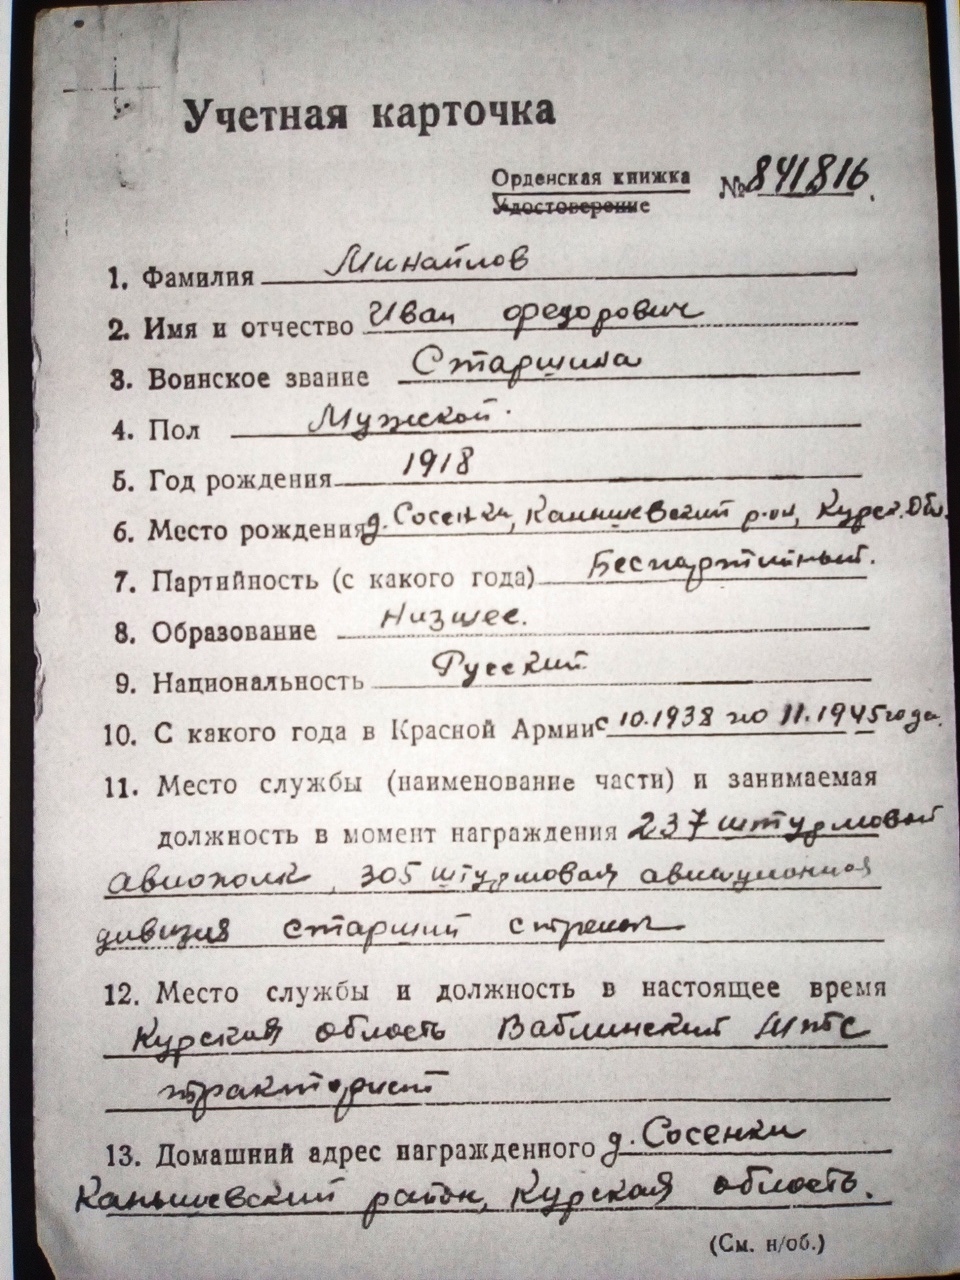 Учетная карточка
Орденская книжка № 841816
Удостоверение
1. Фамилия Михайлов
2. Имя и отчество Иван Федорович
3. Воинское звание Старшина
4. Пол Мужской.
5. Год рождения 1918
6. Место рождения д. Сосенки, Канышевский р-он, Курск. Обл.
7. Партийность (с какого года) Беспартийный.
8. Образование Низшее.
9. Национальность Русский
10. С какого года в Красной Армии с 10.1938 по 11.1945 года.
11. Место службы (наименование части) и занимаемая
должность в момент награждения 237 штурмовой
авиополк, 305 штурмовая авиационная
дивизия старший стрелок
12. Место службы и должность в настоящее время
Курская область Ваблинский МТС
тракторист
13. Домашний адрес награжденного д. Сосенки
Канышевский район, Курская область.
(См. н/об.)